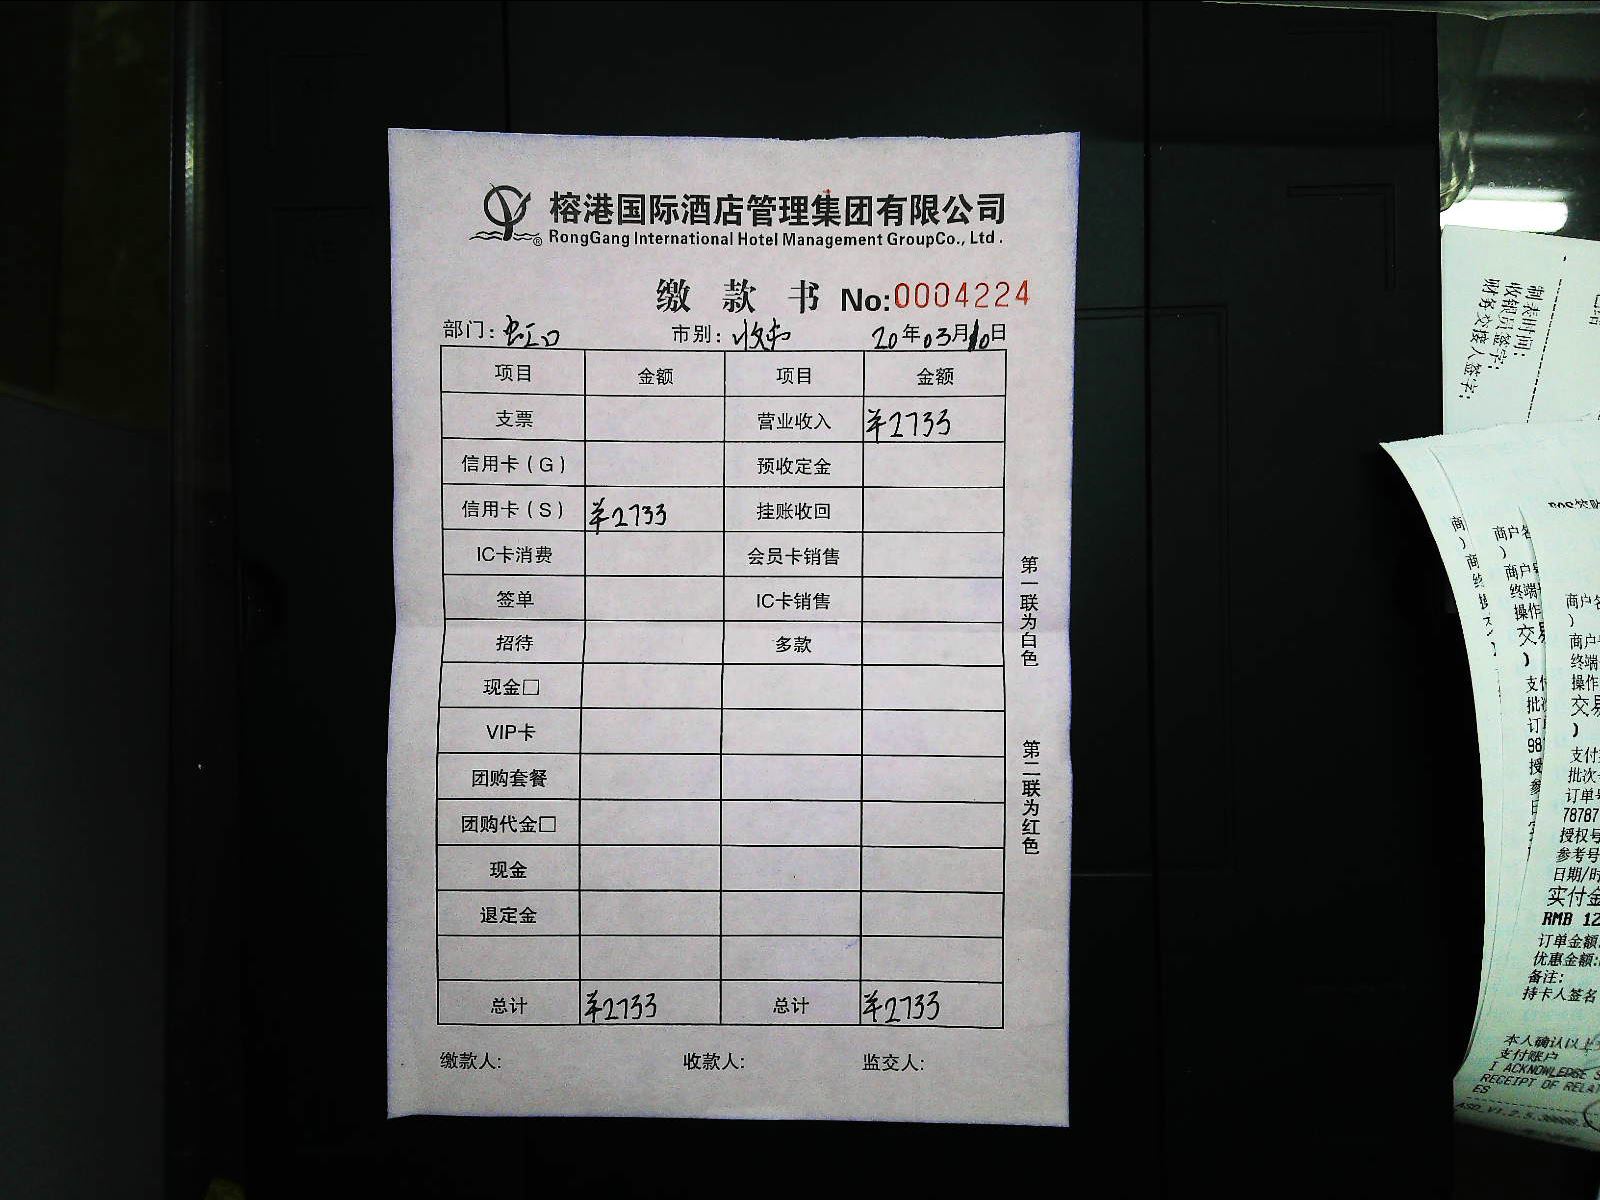 榕港国际酒店管理集团有限公司
RongGang International Hotel Management GroupCo., Ltd.
缴款书 No:0004224
部门：虹口 市别：收市 20年03月10日
项目 金额 项目 金额
支票 营业收入 ¥2733
信用卡（G） 预收定金
信用卡（S） ¥2733 挂账收回
IC卡消费 会员卡销售
签单 IC卡销售
招待 多款
现金□
VIP卡
团购套餐
团购代金□
现金
退定金
总计 ¥2733 总计 ¥2733
缴款人: 收款人: 监交人:
第一联为白色
第二联为红色
制表时间:
收银员签字:
财务交接人签字:
商户
)
商
商户名
)
商户
终端
操作
交易
)
支付
批
订
98
授
参
商户名
)
商户
终端
操作
交易
)
支付
批次
订单号
78787
授权号
参考号
日期/时
实付金
RMB 12
订单金额:
优惠金额:
备注:
持卡人签名
本人确认以上
支付账户
I ACKNOWLEDGE S
RECEIPT OF RELA
ES